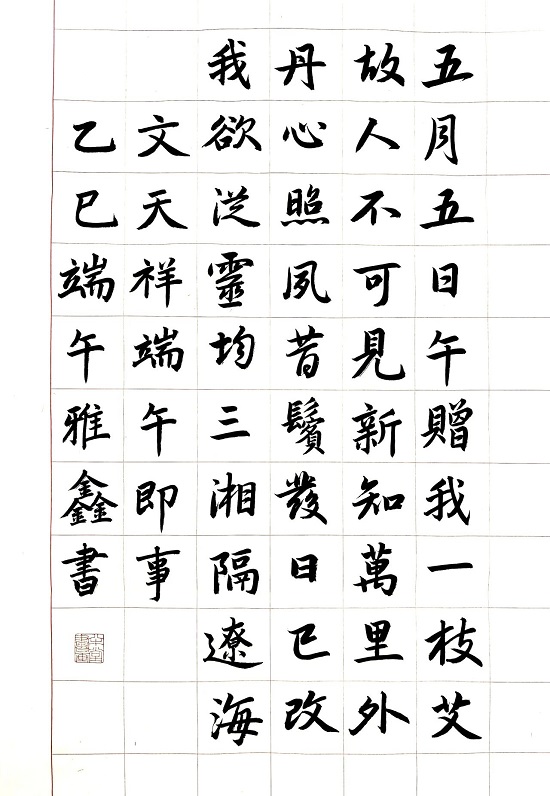 五月五日午贈我一枝艾
故人不可見新知萬里外
丹心照夙昔鬢發日已改
我欲從靈均三湘隔遼海
文天祥端午即事
乙巳端午雅鑫書